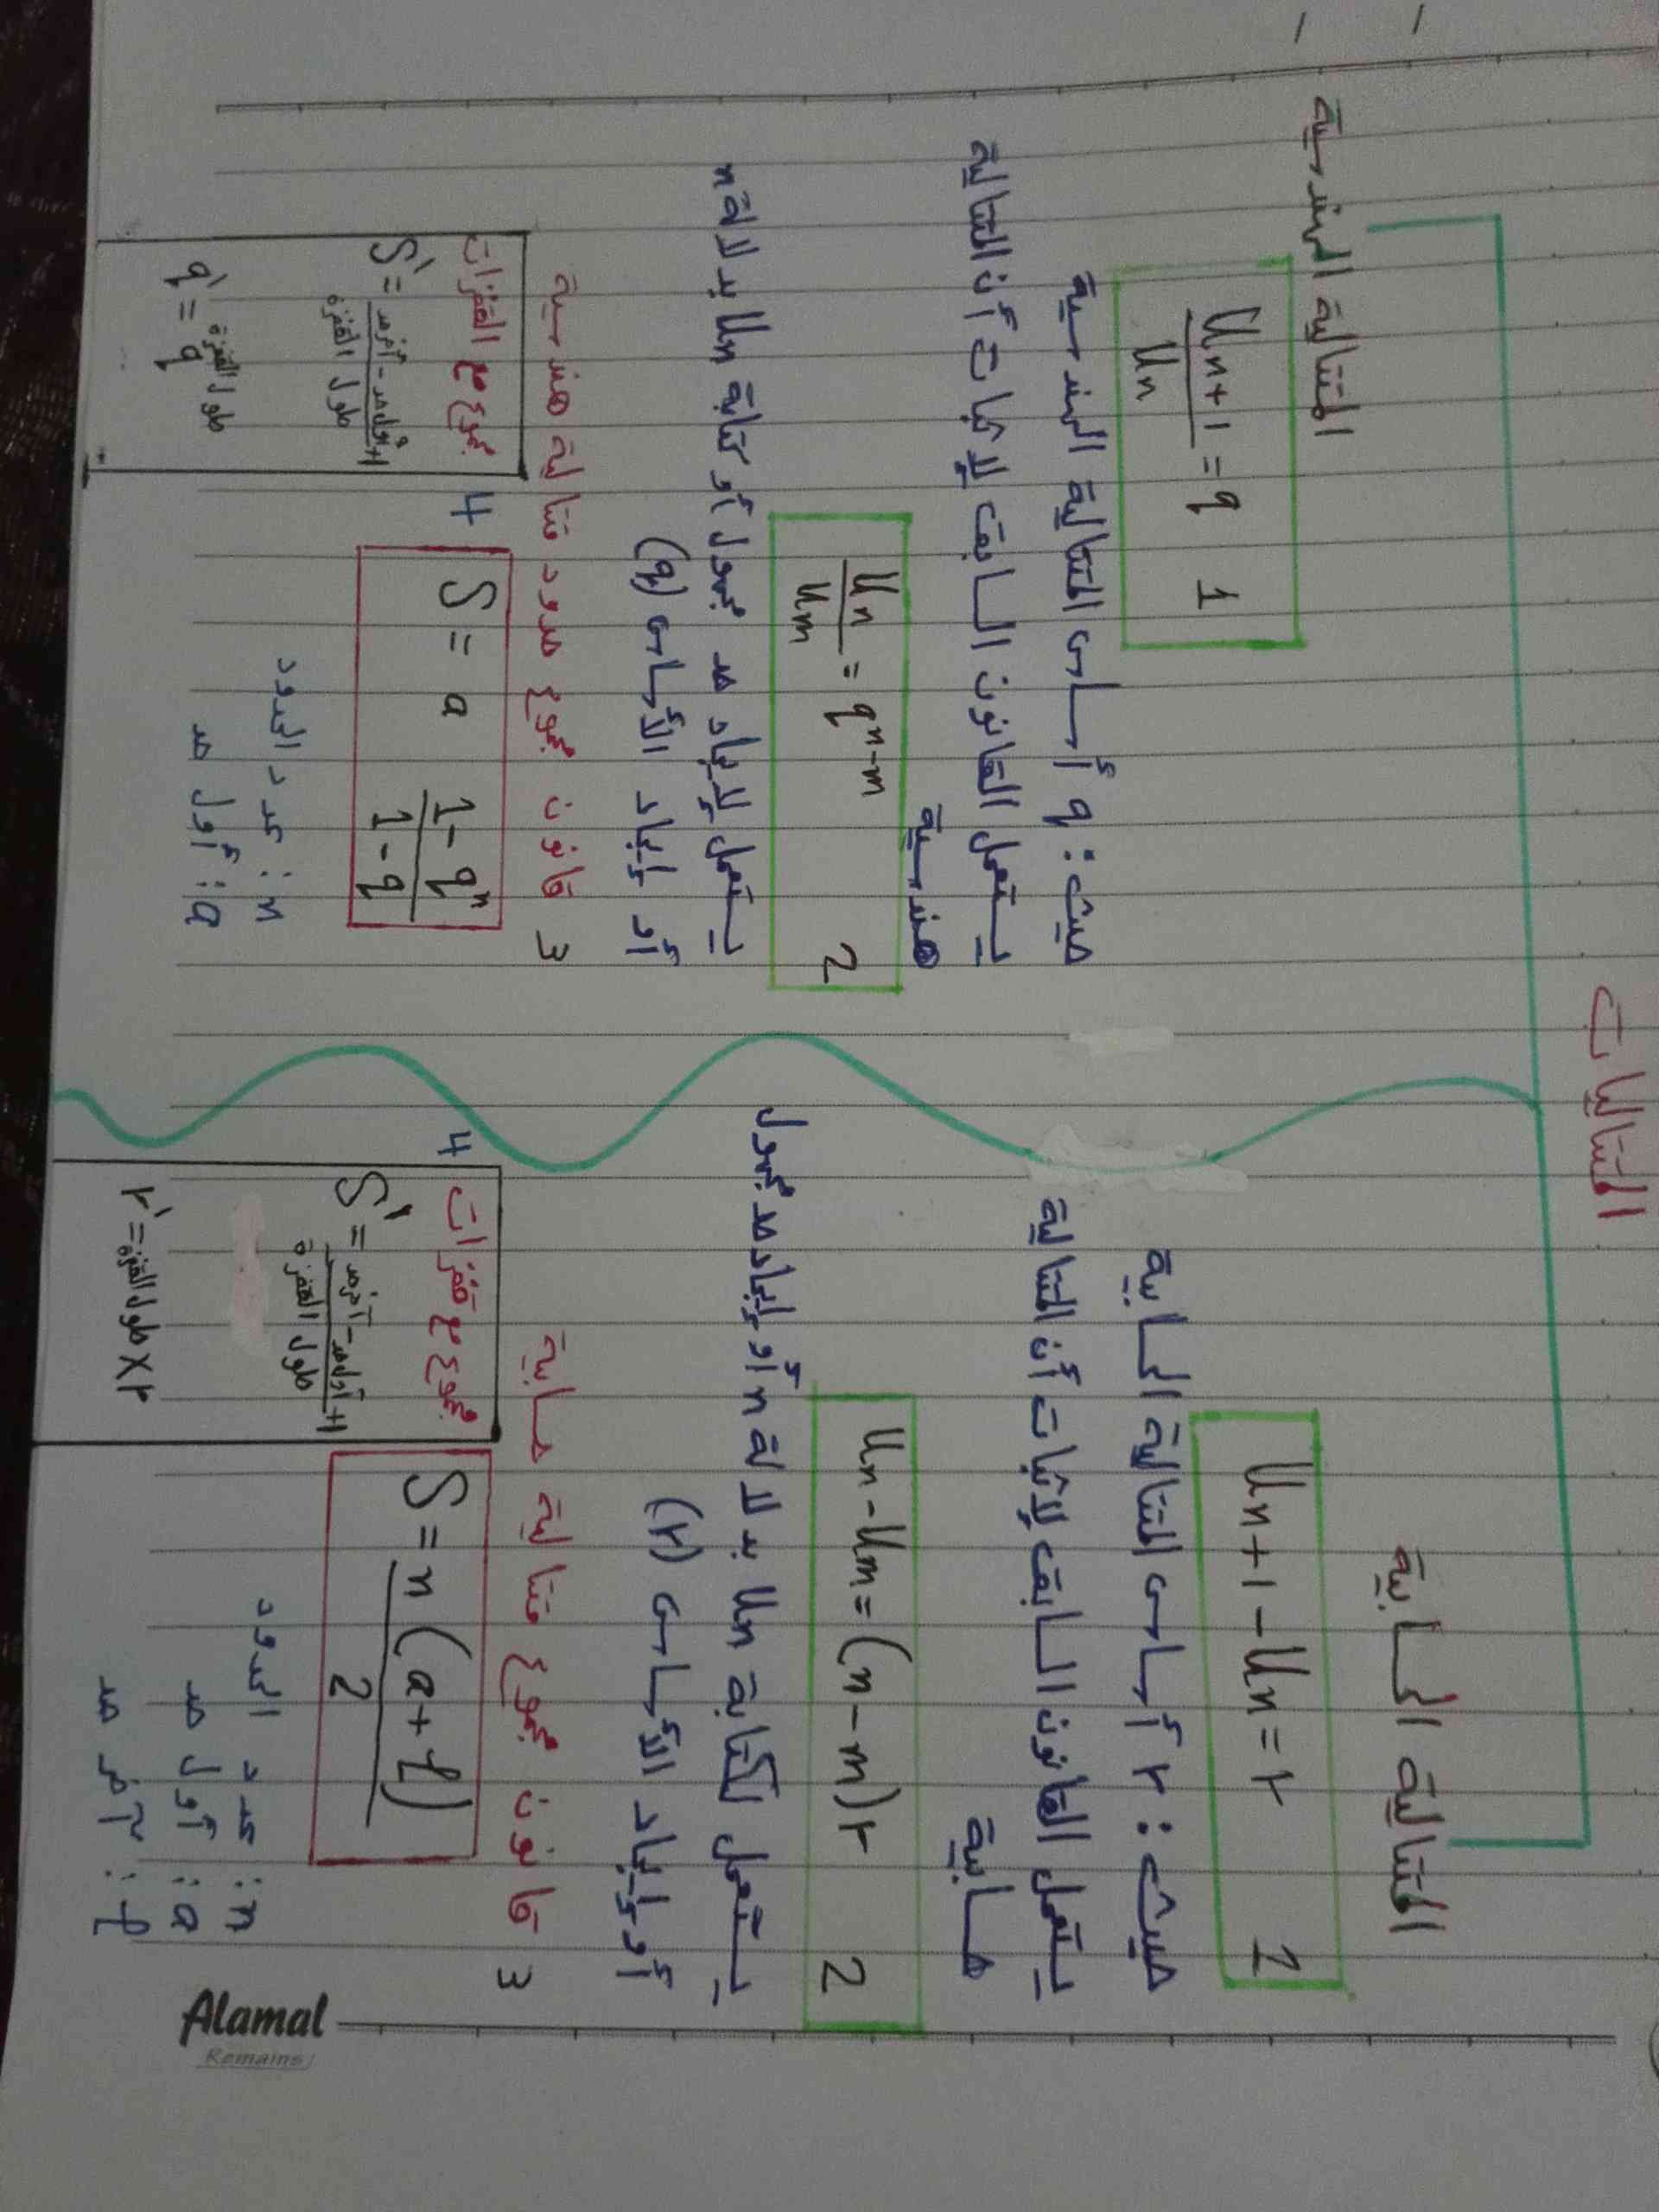 المتتاليات
المتتالية الحسابية
Un+1 - Un = r 1
حيث: r أساس المتتالية الحسابية
يستعمل القانون السابق لإثبات أن المتتالية
حسابية
Un - Um = (n-m)r 2
يستعمل لكتابة Un بدلالة n أو إيجاد حد مجهول
أو إيجاد الأساس (r)
3 قانون مجموع متتالية حسابية
S = n(a+l)/2
n: عدد الحدود
a: أول حد
l: آخر حد
4 مجموع مع قفزات
S' = آخر حد - أول حد / طول القفزة +1
r' = طول القفزة × r
المتتالية الهندسية
Un+1/Un = q 1
حيث: q أساس المتتالية الهندسية
يستعمل القانون السابق لإثبات أن المتتالية
هندسية
Un/Um = q^n-m 2
يستعمل لإيجاد حد مجهول أو كتابة Un بدلالة n
أو إيجاد الأساس (q)
3 قانون مجموع حدود متتالية هندسية
S = a 1-q^n/1-q
n: عدد الحدود
a: أول حد
4 مجموع مع القفزات
S' = آخر حد - أول حد / طول القفزة +1
q' = q^طول القفزة
Alamal
Remains